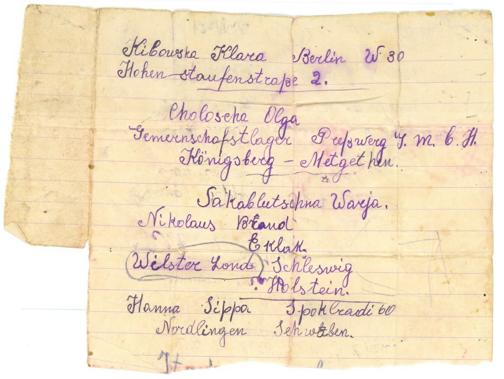 Kibowska Klara Berlin W 30
Hohen-staufenstraße 2.
Choloscha Olga
Gemernschaftlager Preßwerg G. M. b. H.
Königsberg - Metgethen.
Sakablutschna Warja.
Nikolaus Brand
Eklak.
Wilster Land Schleswig
Holstein.
Hanna Sippa
Nordlingen Schwaben.